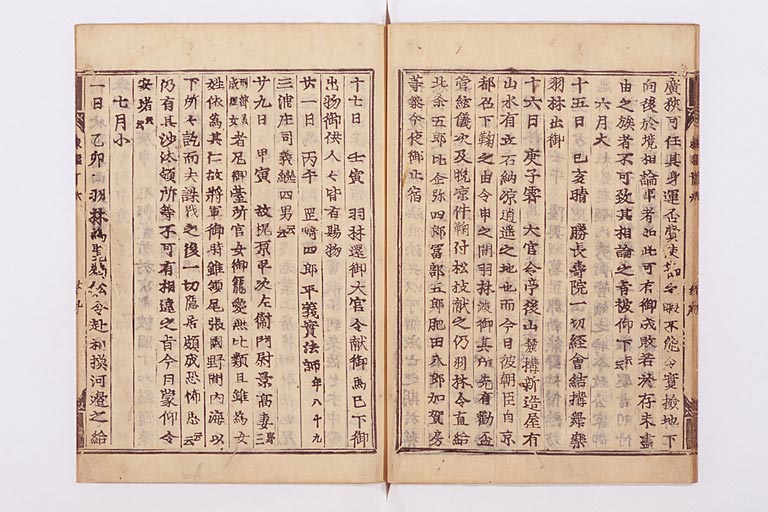 廣狹可任其身運否費使節之暇不能令實撿地下
向後於境相論事者如此可有御成敗若於存未盡
由之族者不可致其相論之旨被仰下云云
六月大
十五日 己亥晴 勝長壽院一切經會結構舞樂
羽林出御
十六日 庚子霽 大官令亭後山麓構新造屋有
山水有立石納凉逍遥之地也而今日彼朝臣自京
都召下鞠之由令申之間羽林渡御其所先有勸盃
管絃儀次及晩凉件鞠付松枝献之仍羽林令直給
北条五郎比企弥四郎冨部五郎肥田八郎加賀房
等祭今夜御止宿
十七日 壬寅 羽林還御大官令献御馬已下御
出物御供人々皆有賜物
廿一日 丙午 罡﨑四郎平義實法師 年八十九
三浦庄司義継四男云云
廿九日 甲寅 故梶原平次左衛門尉景高妻
者尼御臺所官女御寵愛無比類且雖為女
姓依為其仁故將軍御時雖領尾張國野間内海以
下所々訖而夫誅戮之後一切隠居頗成恐怖思云云
仍有其沙汰領所等不可有相違之旨今日蒙仰令
安堵云云
七月小
一日 乙卯 羽林為覧令赴相撲河邊之給